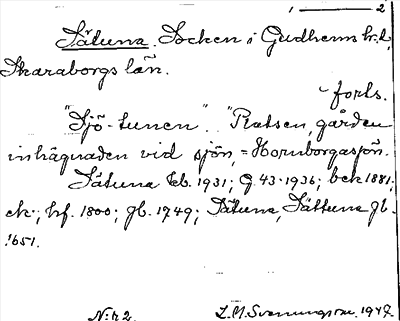 1 — 2
Sätuna. Socken i Gudhems hd,
Skaraborgs län.
forts.
"Sjö-tunen". "Platsen, gården
inhägnaden vid sjön, = Hornborgasjön.
Sätuna tb. 1931; G. 43. 1936; bek 1881;
ek.; hf. 1800; jb. 1749; Sätuna, Sättuna jb.
1651.
N:r 2. L. M. Svenungson. 1947